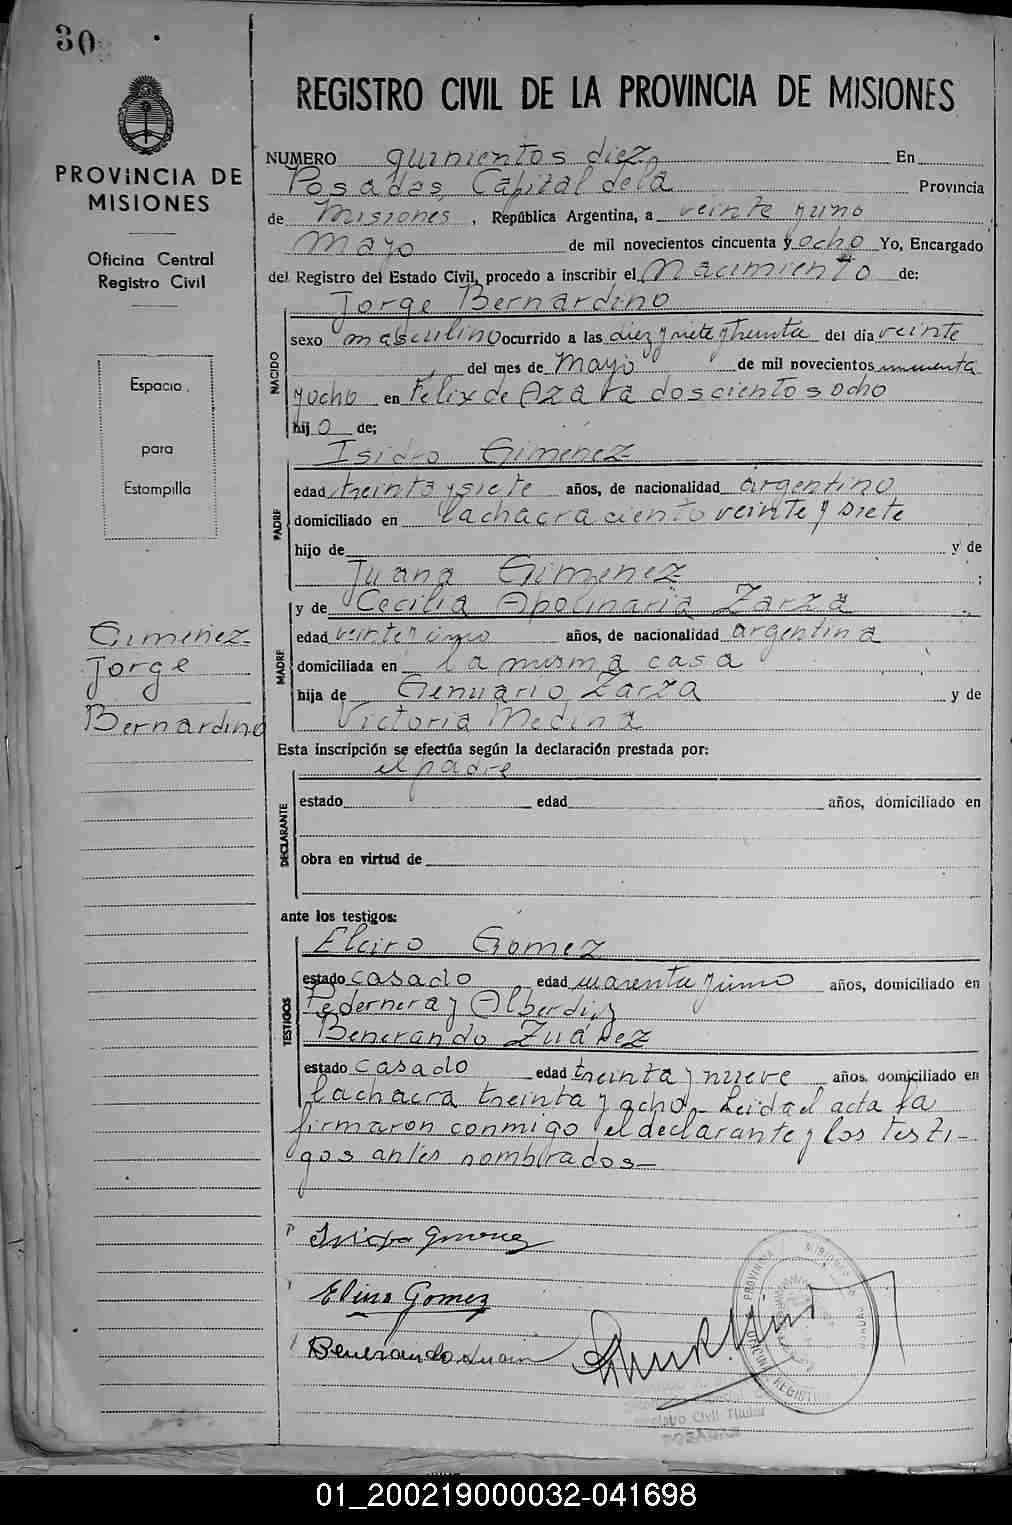 30
REGISTRO CIVIL DE LA PROVINCIA DE MISIONES
PROVINCIA DE
MISIONES
Oficina Central
Registro Civil
Espacio
para
Estampilla
Gimenez
Jorge
Bernardino
NUMERO quinientos diez En
Posadas, Capital de la Provincia
de Misiones, República Argentina, a veinte y uno
Mayo de mil novecientos cincuenta y ocho Yo, Encargado
del Registro del Estado Civil, procedo a inscribir el Nacimiento de:
Jorge Bernardino
NACIDO
sexo masculino ocurrido a las diez y siete y treinta del día veinte
del mes de Mayo de mil novecientos cincuenta
y ocho en Felix de Azara doscientos ocho
hijo de;
Isidro Gimenez
PADRE
edad treinta y siete años, de nacionalidad argentino
domiciliado en la chacra ciento veinte y siete
hijo de y de
Juana Gimenez ;
MADRE
y de Cecilia Apolinaria Zarza
edad veinte y uno años, de nacionalidad argentina
domiciliada en la misma casa
hija de Genuario Zarza y de
Victoria Medina
Esta inscripción se efectúa según la declaración prestada por:
el padre
DECLARANTE
estado edad años, domiciliado en
obra en virtud de
ante los testigos:
TESTIGOS
Elciro Gomez
estado casado edad cuarenta y uno años, domiciliado en
Pedernera y Alberdi y
Benerando Zuarez
estado casado edad treinta y nueve años, domiciliado en
la chacra treinta y ocho. Leida el acta la
firmaron conmigo el declarante y los testi-
gos antes nombrados—
Gimenez
Gomez
Benerando
Registro Civil Titular
POSADAS
01_200219000032-041698